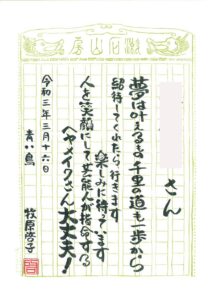 房山石漱
さん
夢は叶えるさ千里の道も一歩から
紹待してくれたら行きます
楽しみに待ってます
人を笑顔にして芸能人が指命する
ヘヤメイクさん大丈夫!
令和三年三月十六日
青い鳥
牧原啓子